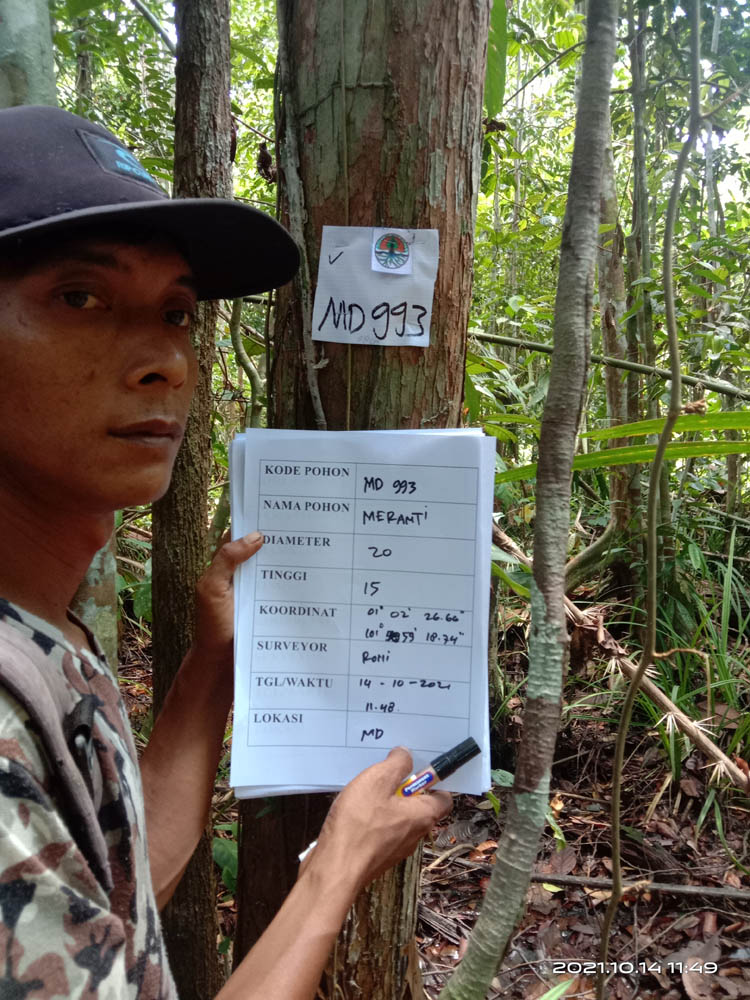 ✓
MD 993
KODE POHON MD 993
NAMA POHON MERANTI
DIAMETER 20
TINGGI 15
KOORDINAT 01° 02' 26.66"
101° 59' 18.74"
SURVEYOR ROMI
TGL/WAKTU 14 - 10 - 2021
11.48.
LOKASI MD
2021.10.14 11:49